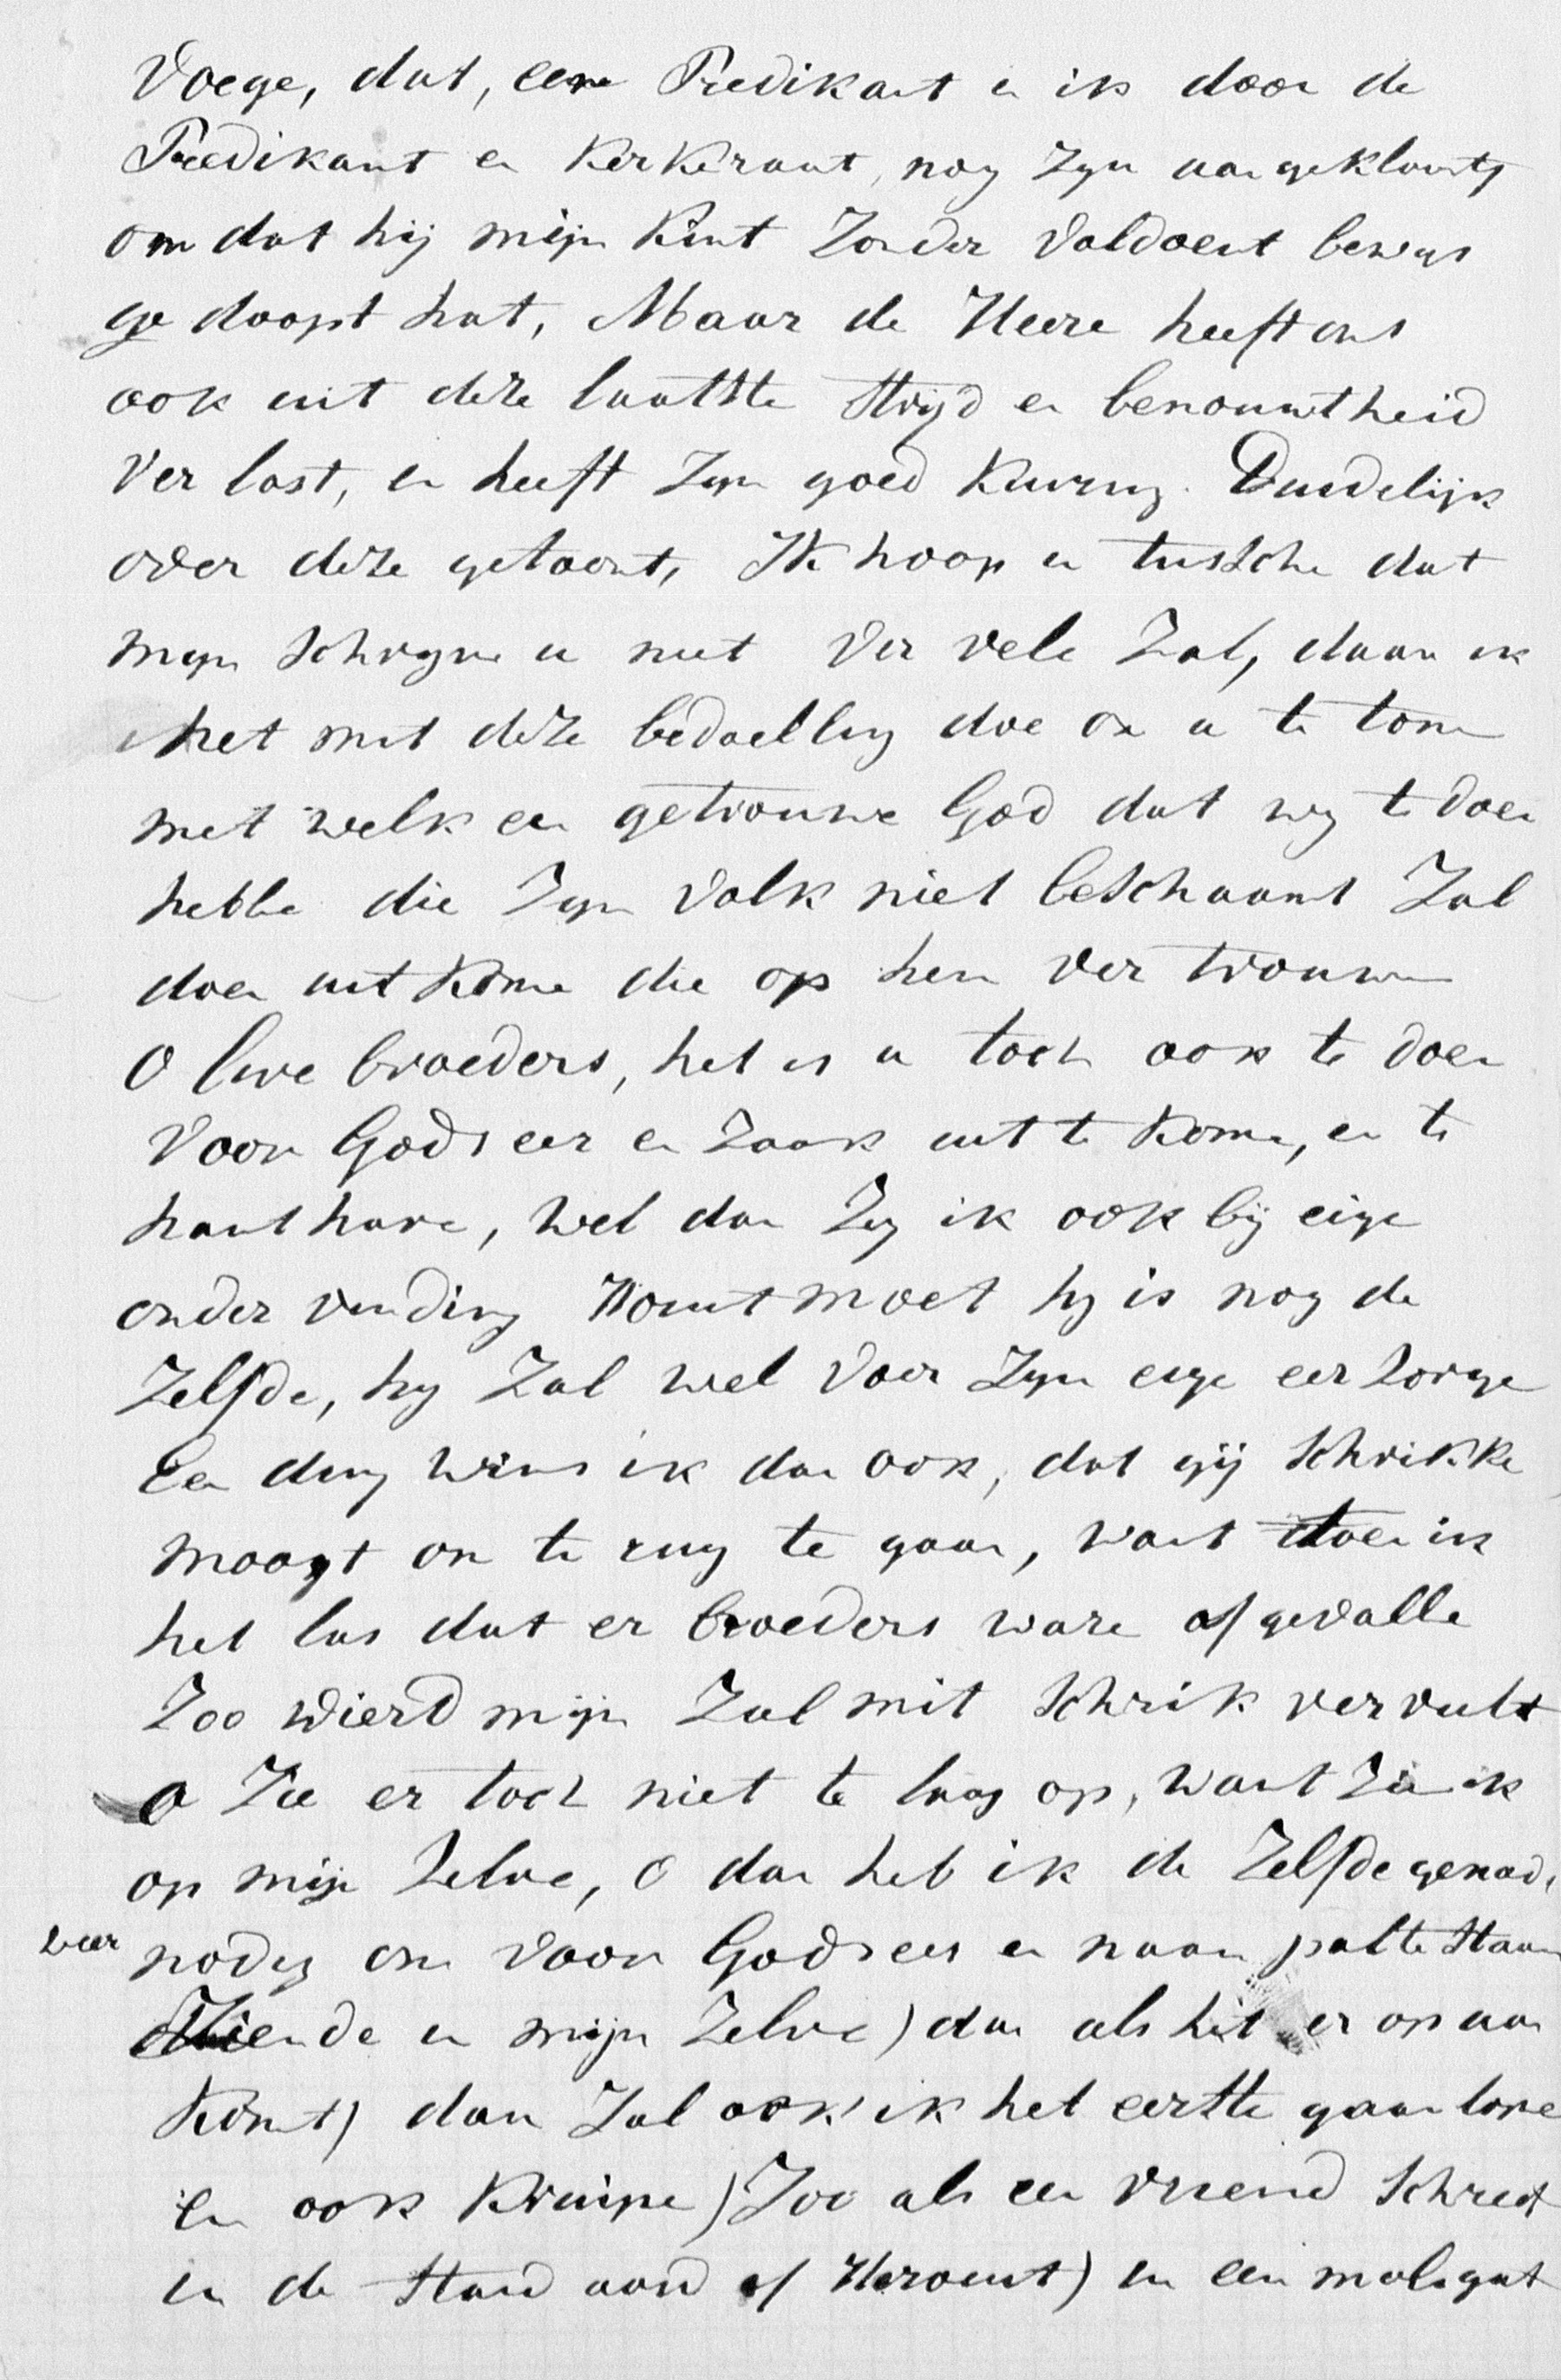 Voege, dat, eene Predikant en ik door de
Predikant en Kerkeraat, nog Zyn aangeklaagt
om dat hij mijn Kint Zonder Voldoent bewys
ge doopt hat, Maar de Heere heeft ons
ook uit deze laatste Strijd en benouwtheid
Ver lost, en heeft Zyn goed Keuring Duidelijk
over deze getoont, Ik hoop in tussche dat
myn Schryve u niet Ver vele Zal, daar ik
het met deze bedoelling doe om u te tone
met welk een getrouwe God dat wy te doen
hebbe die Zyn Volk niet beschaamt Zal
doen uit Kome die op hem Ver trouwen
O lieve broeders, het is u toch ook te doen
Voor Gods eer en Zaak uit te Kome, en te
hant have, Wel dan Zeg ik ook bij eige
onder vinding Hout moet hy is nog de
Zelfde, hy Zal wel Voor Zyn eige eer Zorge
Een ding wens ik dan ook, dat gij Schrikke
moogt om te rug te gaan, want toen ik
het las dat er broeders ware afgevalle
Zoo wierd mijn Zul mit Schrik vervult
o Zie er toch niet te laag op, want Zie ik
op mijn Zelve, o dan heb ik de Zelfde genade
weer nodig om Voor Gods eer en naam pal te Staan
Ziende in mijn Zelve) dan als het er op aan
Komt) dan Zal ook ik het eerste gaan lope
En ook Kruipe) Zoo als een Vriend Schreef
in de Stand aard of Heraut) in een molsgat